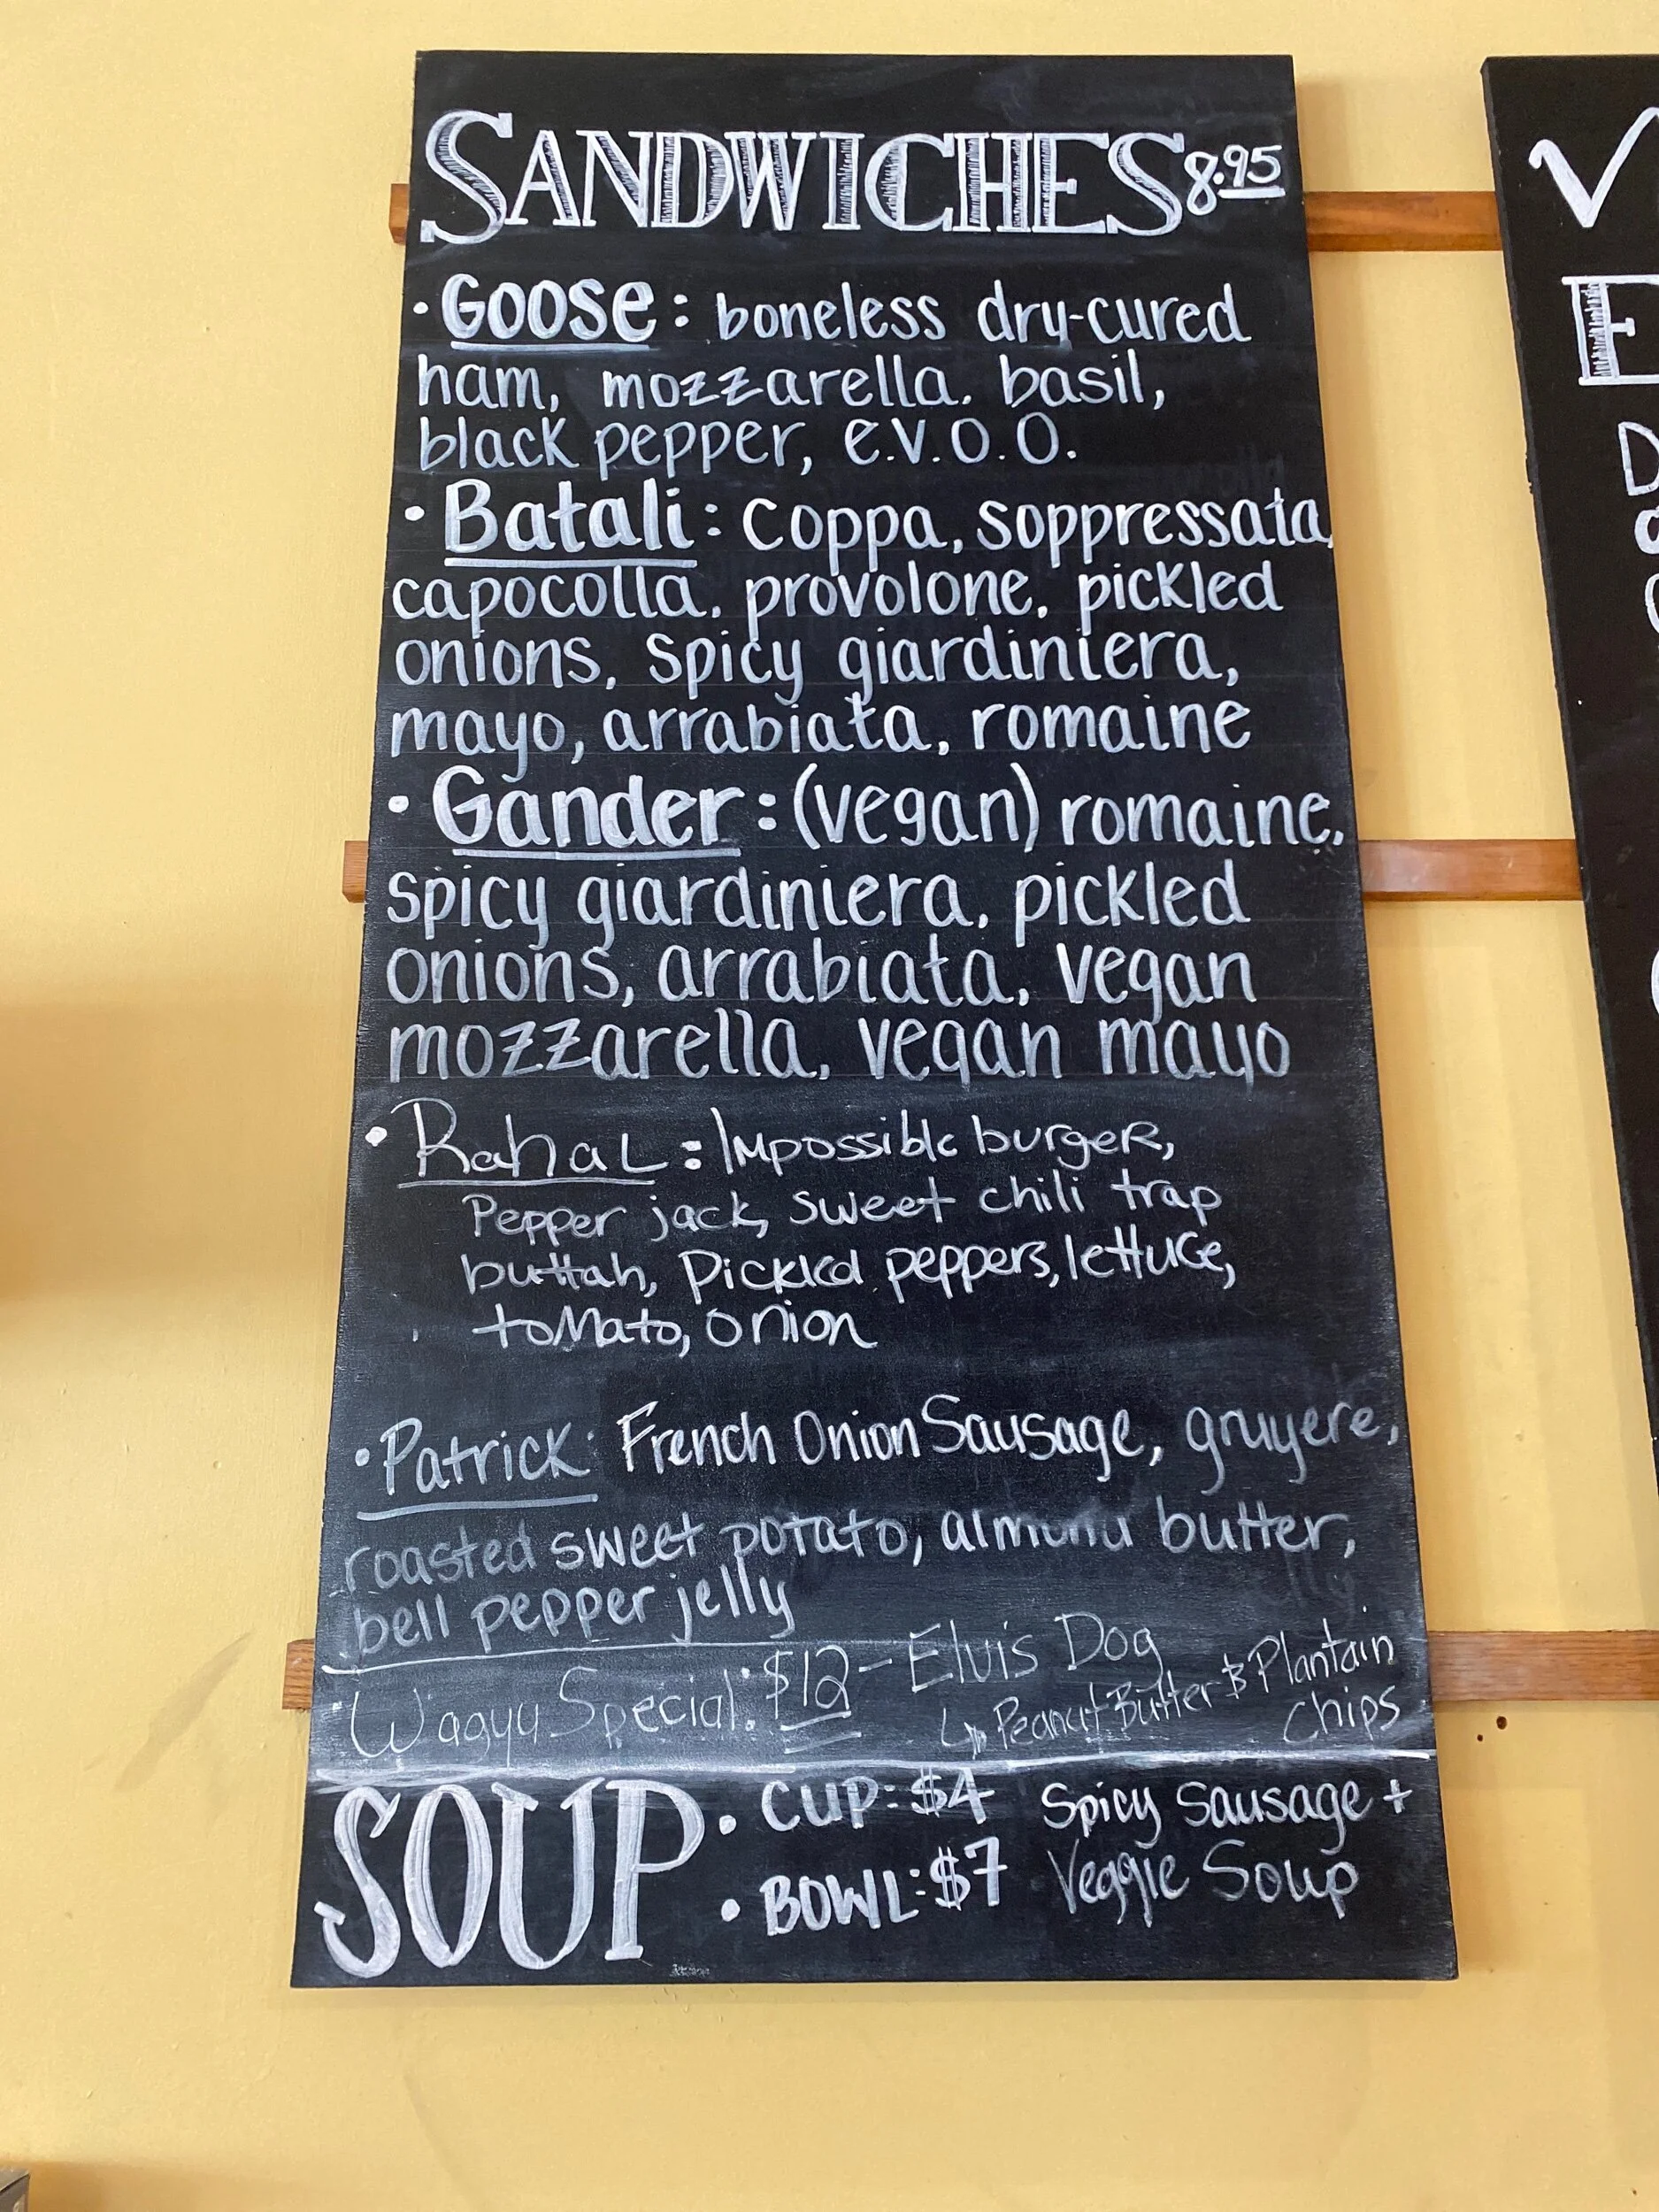 SANDWICHES 8.95
• Goose: boneless dry-cured
ham, mozzarella. basil,
black pepper, e.v.o.o.
• Batali: Coppa, soppressata,
capocolla, provolone, pickled
onions, spicy giardiniera,
mayo, arrabiata, romaine
• Gander: (vegan) romaine,
spicy giardiniera, pickled
onions, arrabiata, vegan
mozzarella, vegan mayo
• Rahal: Impossible burger,
Pepper jack, sweet chili trap
buttah, Pickled peppers, lettuce,
tomato, onion
• Patrick: French Onion Sausage, gruyere,
roasted sweet potato, almond butter,
bell pepper jelly
• Wagyu Special: $12 - Elvis Dog
↳ Peanut Butter & Plantain
Chips
SOUP • CUP: $4 Spicy Sausage +
• BOWL: $7 Veggie Soup